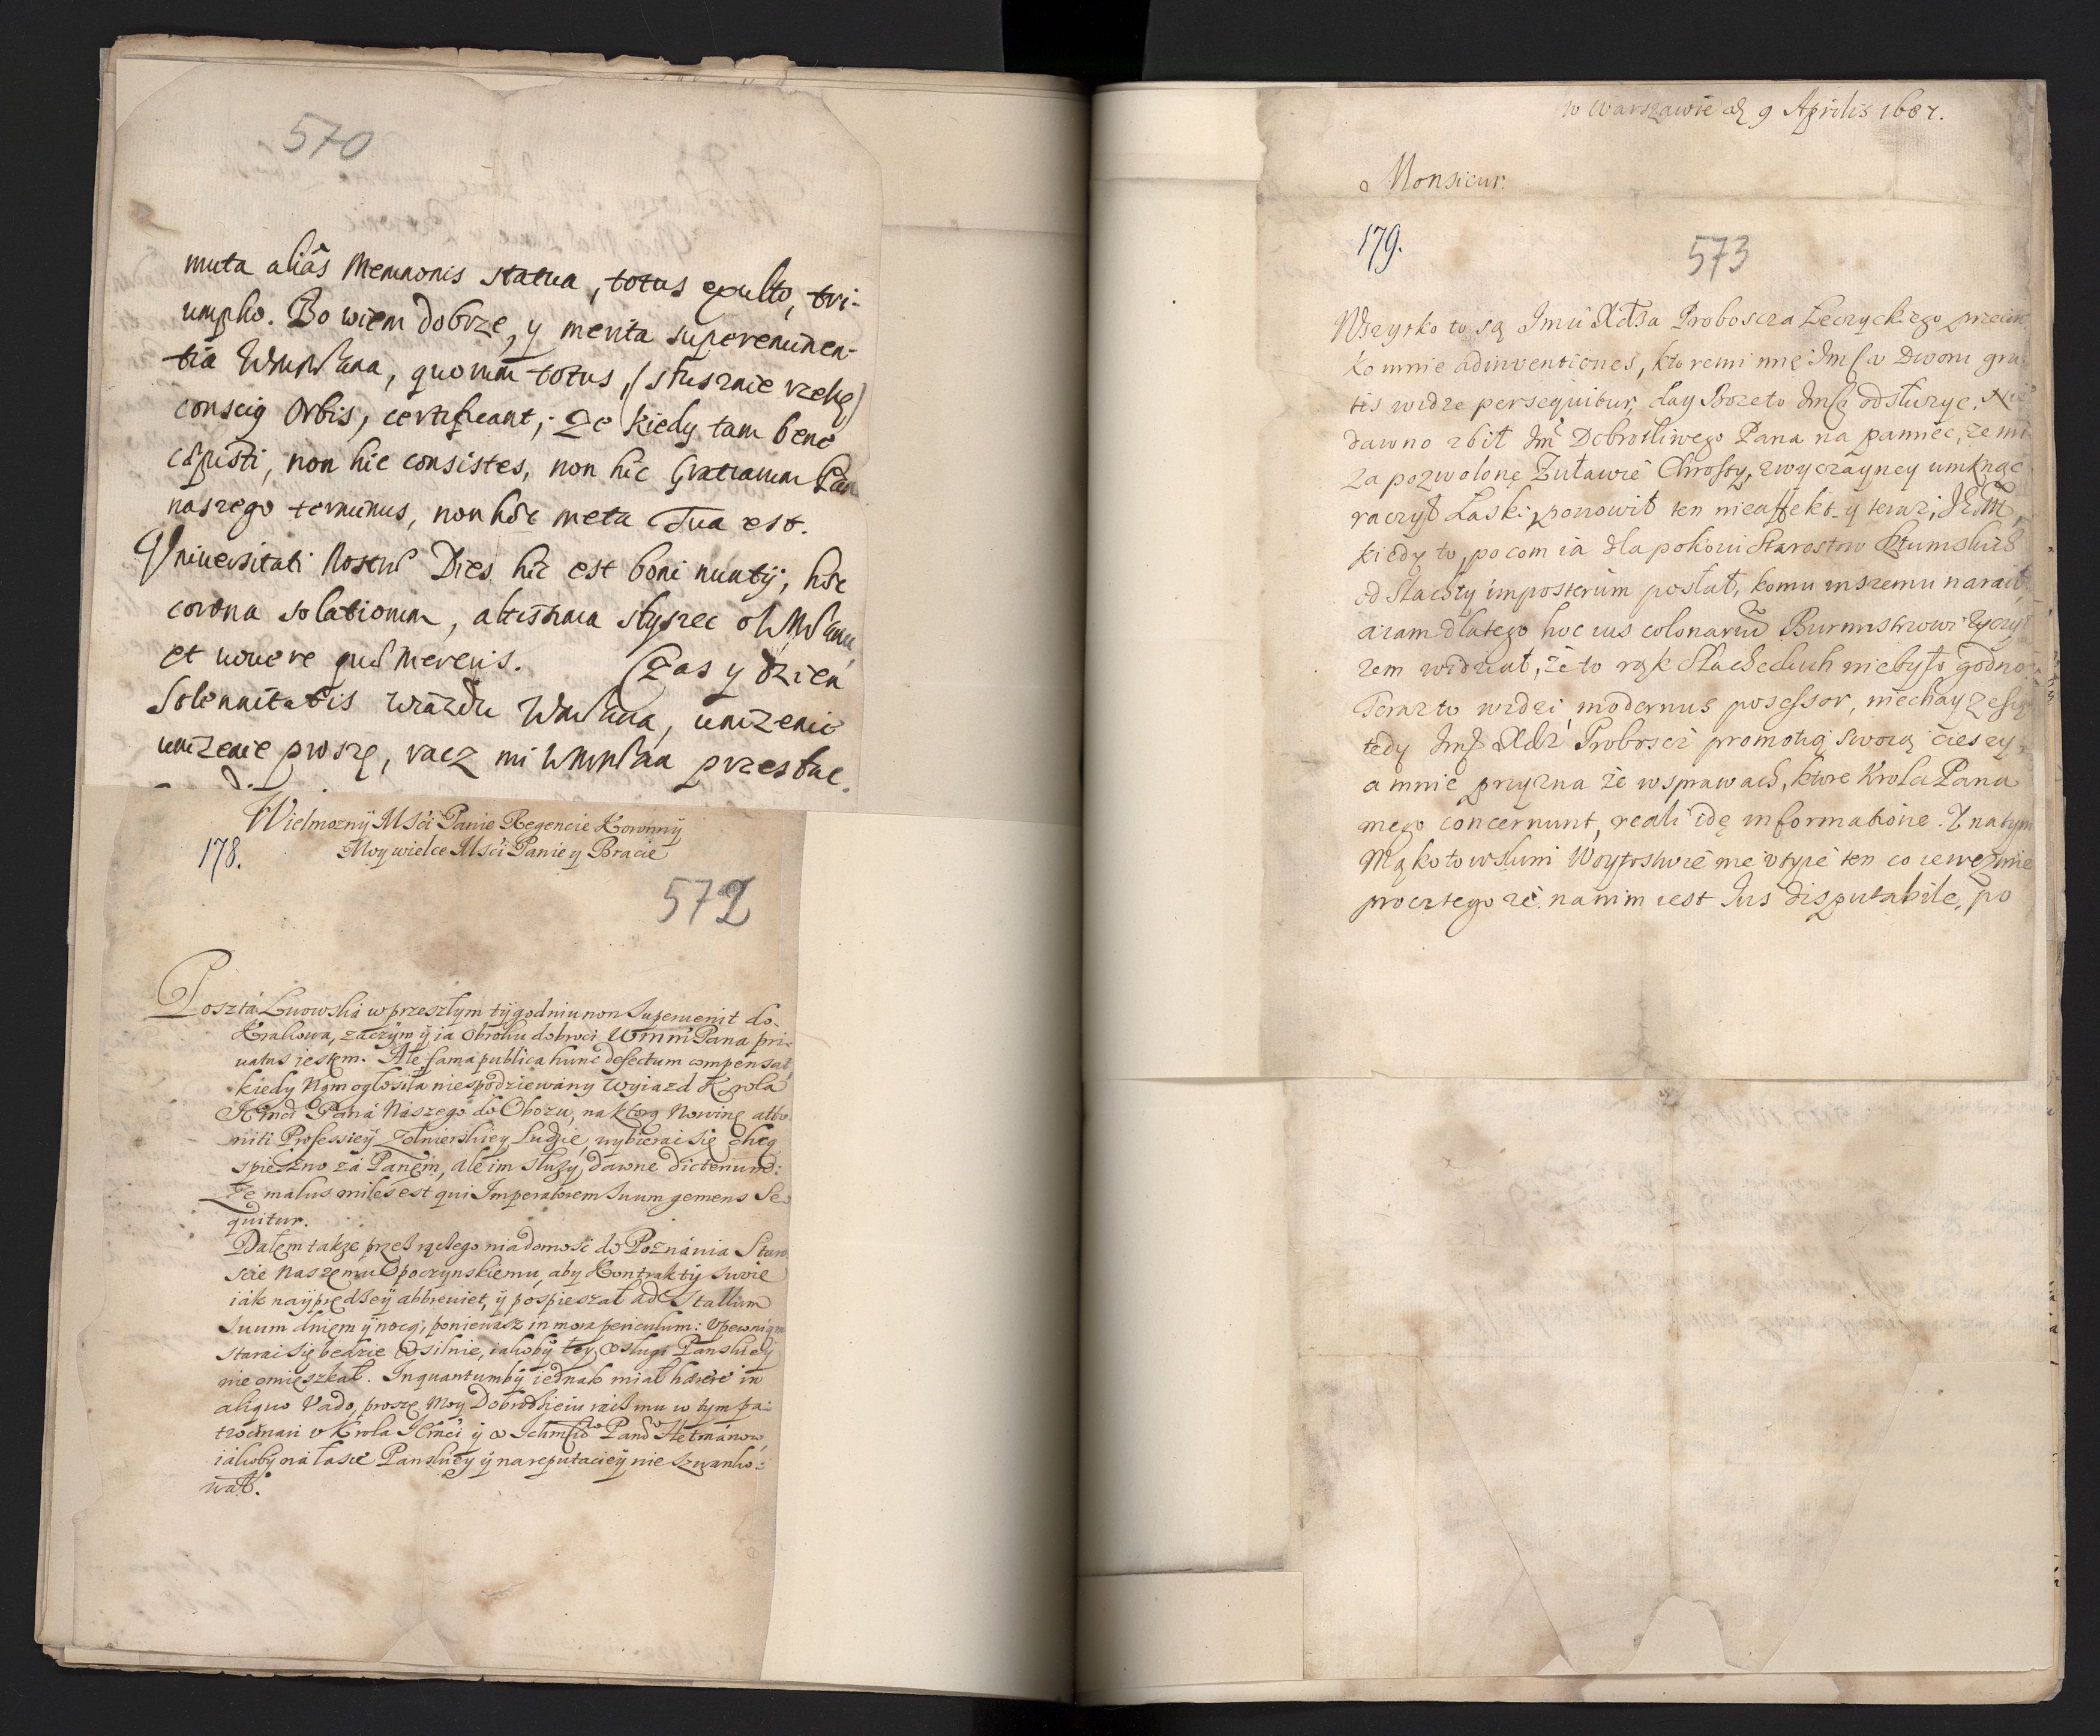 570
muta aliâs Memnonis statua, totus exulto, tri-
umpho. Bo wiem dobrze, y merita supereminen-
tia WmMPana, quorum totus, (słusznie rzekę)
conscig Orbis, certificant; Ze kiedy tam bene
cæpisti, non hic consistes, non hic Gratiarum Pan
naszego terminus, non hæc meta Tua est.
Universitati Nostræ Dies hic est boni nuntÿ, hæc
corona solationum, altissima słyszec o WMPanu,
et vovere quæ mereris. Czas y dzien
Solennitatis wiazdu WmPana, unizenie
unizenie proszę, racz mi WMMPan przesłac.
178.
Wielmoznÿ MSci Panie Regencie Koronnÿ
Moy wielce MSci Panie y Bracie
572
Poszta Lwowska w przeszłym tÿgodniu non supervenit do
Krakowa, zaczÿm ÿ ia obroku dobroci WmM Pana pri-
vatus jestem. Ale fama publica hunc defectum compensat,
kiedy Nam ogłosiła niespodziewany wyiazd Krola
JKMci Pana Naszego do Obozu, na ktorą Nowinę atto-
niti Professiey Zołnierskiey Ludzie, wybierai się chcą
spieszno za Panem, ale im słuzy, dawne dicterium:
Ze malus miles est qui Imperatorem suum gemens se-
quitur.
Dałem takze przez wiadomosc do Poznania Staro-
scie Naszemu Opoczynskiemu, aby Kontraktÿ swoie
iak naÿprędzeÿ abbreviet, ÿ pospieszał ad Stallum
suum dniem ÿ nocą, poniewasz in mora periculum: Upewniam
starai się będzie usilnie, iakobÿ tey usługi Panskiey
nie omieszkał. Inquantumbÿ iednak miał hærere in
aliquo Vado, proszę Moy Dobrodzieiu racz mu w tym pa-
trocinari u Krola JKMci ÿ u Panow Hetmanow,
iakobÿ na łasce Panskieÿ ÿ na reputacieÿ nie szwanko-
wał.
w Warszawie d 9 Aprilis 1687.
Monsieur.
179.
573
Wszysko to są Jmci Xdza Proboscza Łeczyckiego przeciw
ko mnie adinventiones, ktoremi mię Jmsc u Dworu gra-
tis widze persequitur, day Boze to Jmsci odsłuzyc. Nie
dawno zbił Jmsc Dobrotliwego Pana na pamiec, ze mi
za pozwolonę Zuławie Chrosty, zwyczayney umknąc
raczył Łaski, ponowił ten nieaffekt y teraz,
kiedy to, po com ia dla pokoiu Starostow Sztumskich
od Slachty imposterum posłał, komu inszemu naraił,
a iam dlatego hoc ius colonarium Burmistrzowi zyczył
zem widział, ze to rąk Slacheckich niebyło godno
Teraz to widzi modernus possessor, niechay
tedy Jmsc Xdz Proboscz promotią swoią cieszy,
a mnie przyzna ze w sprawach, ktore Krola Pana
mego concernunt, reali idę informatione. Y na tym
Mąkotowskim Woytostwie nie utyie ten co ie wezmie
procz tego ze na nim iest Jus disputabile, po